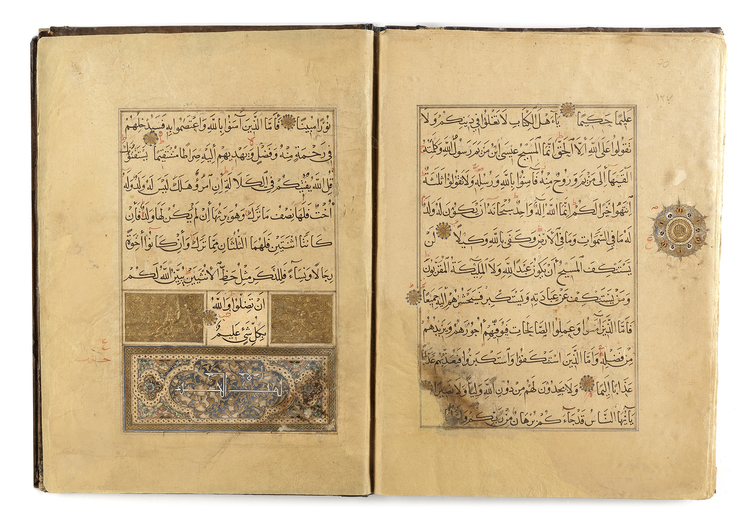 عليما حكيما يا هل الكتاب لا تغلوا في دينكم ولا
تقولوا على الله الا الحق انما المسيح عيسى ابن مريم رسول الله وكلمته
القيها الى مريم وروح منه فامنوا بالله ورسله ولا تقولوا ثلثة
انتهوا خيرا لكم انما الله اله واحد سبحانه ان يكون له ولد
له ما في السموات وما في الارض وكفى بالله وكيلا لن
يستنكف المسيح ان يكون عبد الله ولا الملئكة المقربون
ومن يستنكف عن عبادته ويستكبر فسيحشرهم اليه جميعا
فاما الذين امنوا وعملوا الصالحات فيوفيهم اجورهم ويزيدهم
من فضله واما الذين استنكفوا واستكبروا فيعذبهم
عذابا اليما ولا يجدون لهم من دون الله وليا ولا نصيرا
يا ايها الناس قد جاءكم برهان من ربكم وانزلنا
نورا مبينا فاما الذين امنوا بالله واعتصموا به فسيدخلهم
في رحمة منه وفضل ويهديهم اليه صراطا مستقيما يستفتونك
قل الله يفتيكم في الكلالة ان امرؤ هلك ليس له ولد وله
اخت فلها نصف ما ترك وهو يرثها ان لم يكن لها ولد فان
كانتا اثنتين فلهما الثلثان مما ترك وان كانوا اخوة
رجالا ونساء فللذكر مثل حظ الانثيين يبين الله لكم
ان تضلوا والله
بكل شيء عليم